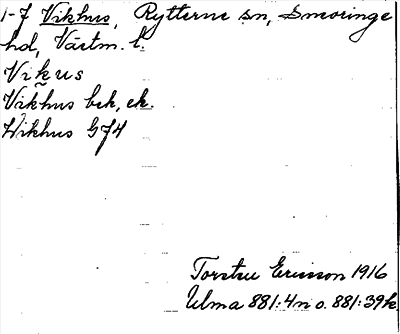 1-7 Vikhus, Rytterne sn, Snevringe
hd, Västm. l.
Vikus
Vikhus bek, ek.
Wikhus GJ4
Torsten Ericsson 1916
Ulma 881:4 n o. 881:39 k.